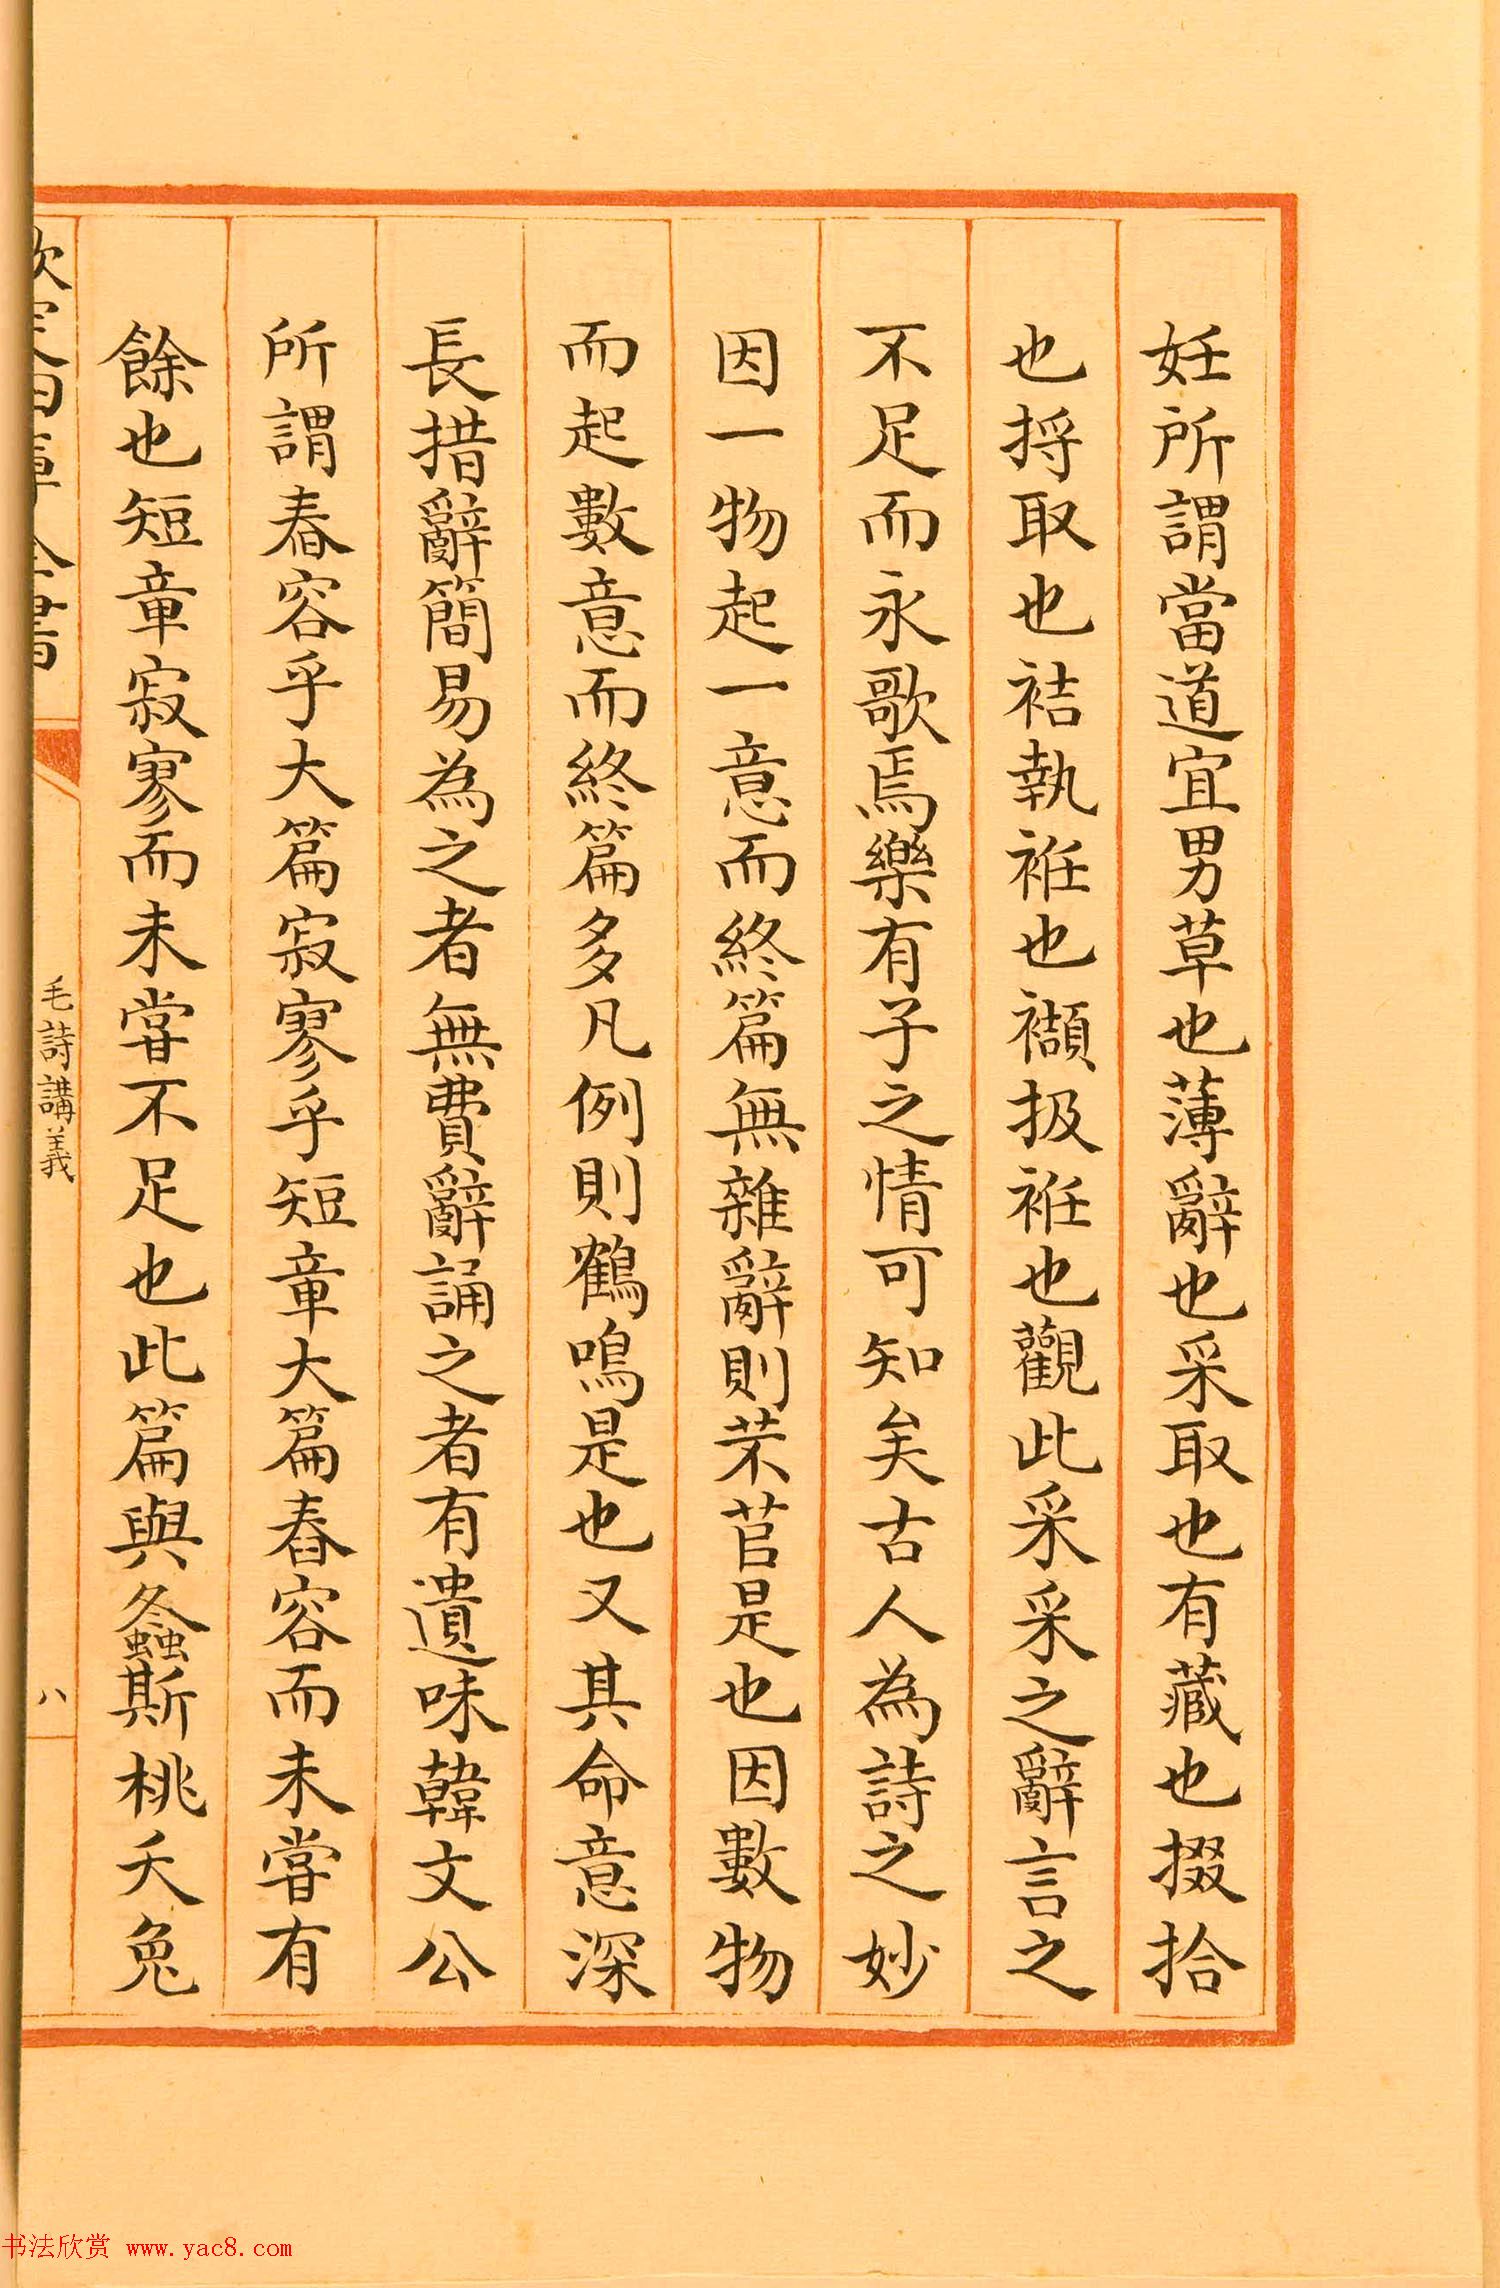 妊所謂當道宜男草也薄辭也采取也有藏也掇拾
也捋取也袺執袵也襭扱袵也觀此采采之辭言之
不足而永歌焉樂有子之情可知矣古人為詩之妙
因一物起一意而終篇無雜辭則芣苢是也因數物
而起數意而終篇多凡例則鶴鳴是也又其命意深
長措辭簡易為之者無費辭誦之者有遺味韓文公
所謂舂容乎大篇寂寥乎短章大篇舂容而未嘗有
餘也短章寂寥而未嘗不足也此篇與螽斯桃夭兔
欽定四庫全書
毛詩講義
八
书法欣赏 www.yac8.com